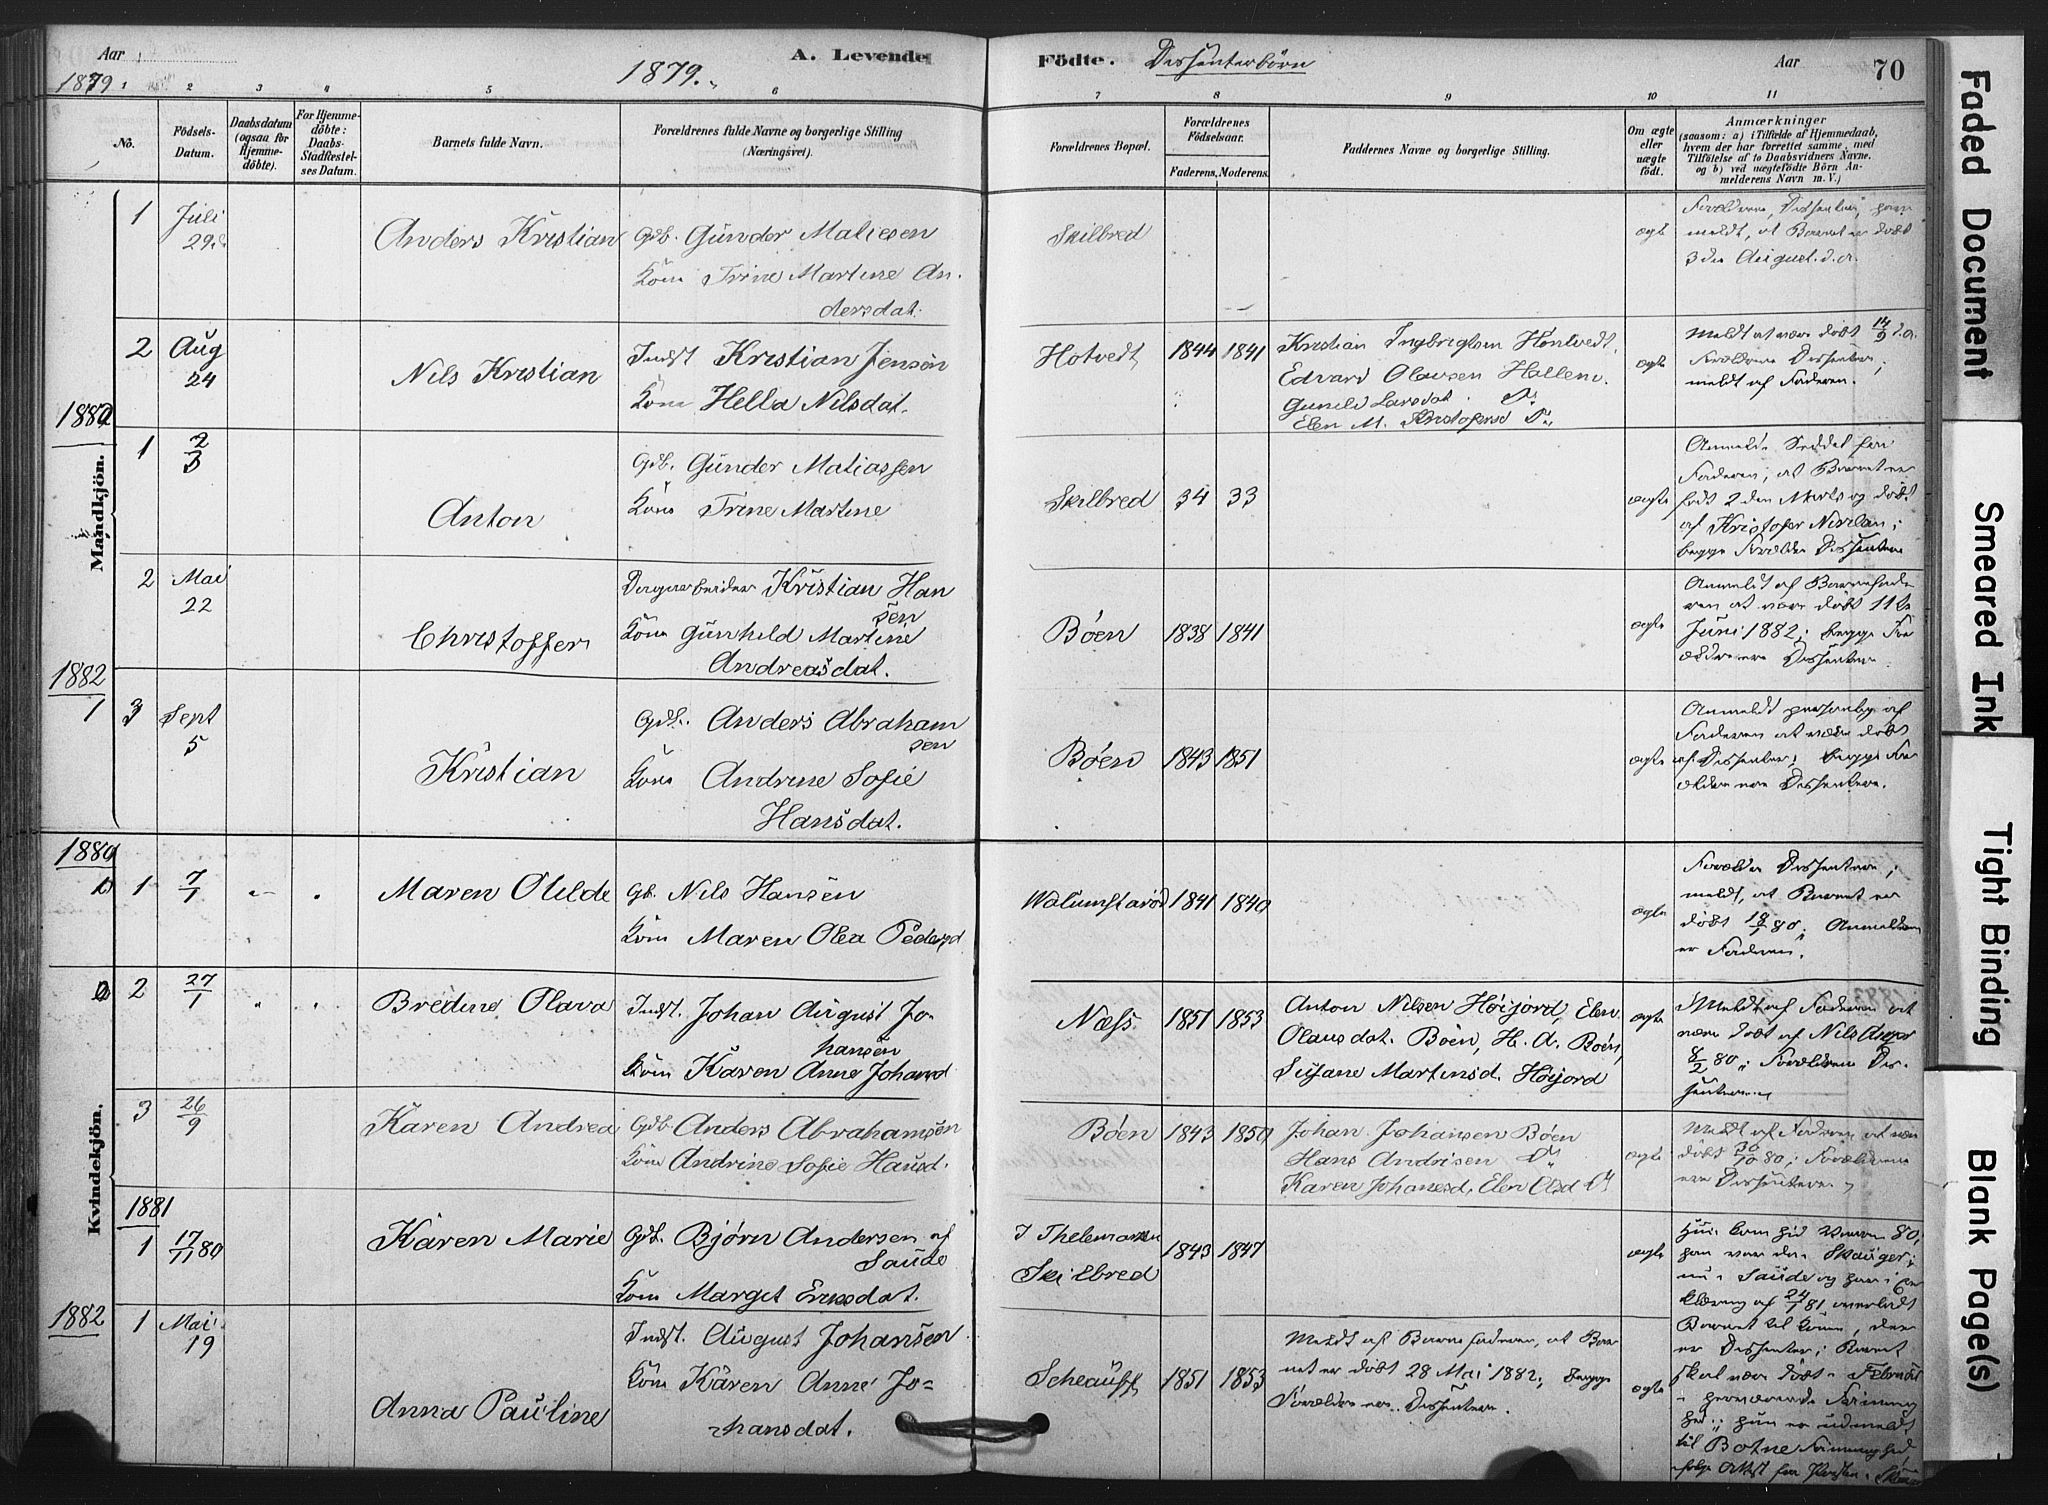 Aar
1879
1879.
A. Levende Födte. Dissenterbörn
Aar
70
1 2 3 4 5 6 7 8 9 10 11
No.
Födsels-Datum.
Daabsdatum (ogsaa for Hjemmedöbte).
For Hjemmedöbte: Daabs-Stadfæstelses Datum.
Barnets fulde Navn.
Forældrenes fulde Navne og borgerlige Stilling (Næringsvei).
Forældrenes Bopæl.
Forældrenes Födselsaar.
Faderens. Moderens.
Faddernes Navne og borgerlige Stilling.
Om ægte eller uægte födt.
Anmærkninger
(saasom: a) i Tilfælde af Hjemmedaab,
hvem der har forrettet samme, med
Tilföielse af to Daabsvidners Navne.
og b) ved uægtefödte Börn An-
melderens Navn m. V.)
Mandkjön.
1 Juli 29de
Anders Kristian
Gdb. Gunder Matiesen
Kone Trine Martine An-
dersdat.
Skilbred
ægte
Forældrene, Dissentere, have
meldt, at Barnet er döbt
3die August d.a.
2 Aug 24
Nils Kristian
Indst Kristian Jensen
Kone Hella Nilsdat.
Hotvedt 1844 1841
Kristian Ingbrigtsen Hontvedt.
Edvard Olavsen Hallem.
Gunild Larsdat. Do.
Elen M. Kristofersd Do.
ægte
Meldt at være döbt 14/9 d.a.
Forældrene Dissentere;
meldt af Faderen.
1882
1 2/3
Anton
Gdb. Gunder Matiassen
Kone Trine Martine
Skilbred 34 33
ægte
Anmeldt Seddel fra
Faderen, at Barnet er
födt 2den Marts og döbt
af Kristofer
begge Forældre Dissentere
2 Mai 22
Christoffer
Dagarbeider Kristian Han
sen
Kone Gunhild Martine
Andreasdat.
Böen 1838 1841
ægte
Anmeldt af Barnefade
ren at være döbt 11te
Juni 1882; begge For
ældre ere Dissentere.
1882
1
3 Sept 5
Kristian
Gdb. Anders Abraham
sen
Kone Andrine Sofie
Hansdat.
Böen 1843 1851
ægte
Anmeldt personlig af
Faderen at være döbt
af Dissenter; begge For
ældre ere Dissentere.
Kvindekjön.
1880
1 7/1 " "
Maren Olilde
Gb. Nils Hansen
Kone Maren Olea Pedersd
Walumstaröd 1841 1840
ægte
Forældre Dissentere;
meldt, at Barnet er
döbt 18/1 80; Anmelderen
er Faderen.
2 27/1 " "
Bredine Olava
Indst. Johan August Jo-
hansen
Kone Karen Anne Johansd
Næss 1851 1853
Anton Nilsen Höijord, Elen
Olausdat. Böen, H. A. Böen,
Susane Martinsd. Höijord
ægte
Meldt af Faderen at
være döbt af Nils
8/2 80; Forældrene Dis-
sentere.
3 26/9
Karen Andrea
Gdb. Anders Abrahamsen
Kone Andrine Sofie Hansd.
Böen 1843 1850
Johan Johansen Böen
Hans Andrisen Do
Karen Johansd, Elen Olsd Do
ægte
Meldt af Faderen at være
döbt 30/10 80; Forældrene
ere Dissentere.
1881
1 17/11 80
Karen Marie
Gdb. Björn Andersen af
Saude
Kone Marget Eriksdat.
I Thelemarken
Skilbred
1843 1847
ægte
Hun kom hid Vaaren 80;
han var den Skauger;
nu i Saude og har i Er
klæring af 24/1 81 overladt
Barnet til Konen, der
er Dissenter; Barnet
skal være döbt i Februar
i herværende Frimenig
hed; hun er udmeldt
til Botne Frimenighed
1882
1 Mai 19
Anna Pauline
Indst. August Johansen
Kone Karen Anne Jo-
hansdat.
1851 1853
Meldt af Barnefaderen, at Bar-
net er döbt 28 Mai 1882; begge
Forældre ere Dissentere.
ægte
Faded Document
Smeared Ink
Tight Binding
Blank Page(s)